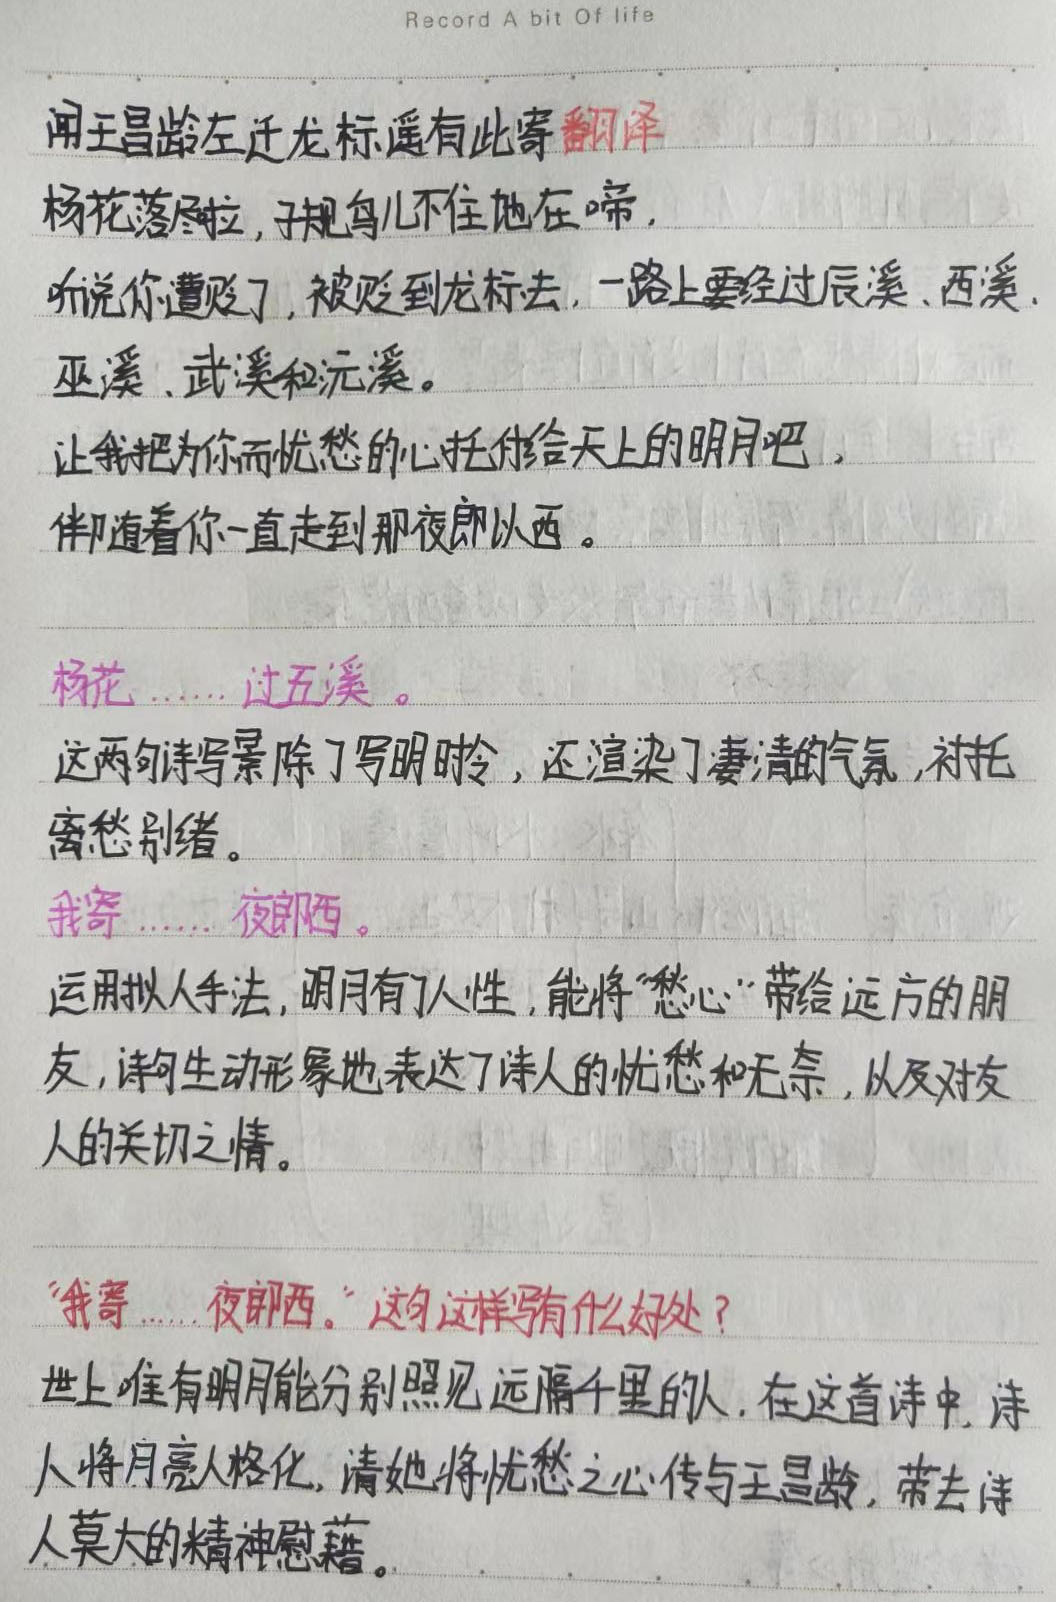 Record A bit Of life
闻王昌龄左迁龙标遥有此寄翻译
杨花落尽啦，子规鸟儿不住地在啼，
听说你遭贬了，被贬到龙标去，一路上要经过辰溪、西溪、
巫溪、武溪和沅溪。
让我把为你而忧愁的心托付给天上的明月吧，
伴随着你一直走到那夜郎以西。
杨花……过五溪。
这两句诗写景除了写明时令，还渲染了凄清的气氛，衬托
离愁别绪。
我寄……夜郎西。
运用拟人手法，明月有了人性，能将“愁心”带给远方的朋
友，诗句生动形象地表达了诗人的忧愁和无奈，以及对友
人的关切之情。
“我寄……夜郎西。”这句这样写有什么好处？
世上唯有明月能分别照见远隔千里的人，在这首诗中，诗
人将月亮人格化，请她将忧愁之心传与王昌龄，带去诗
人莫大的精神慰藉。